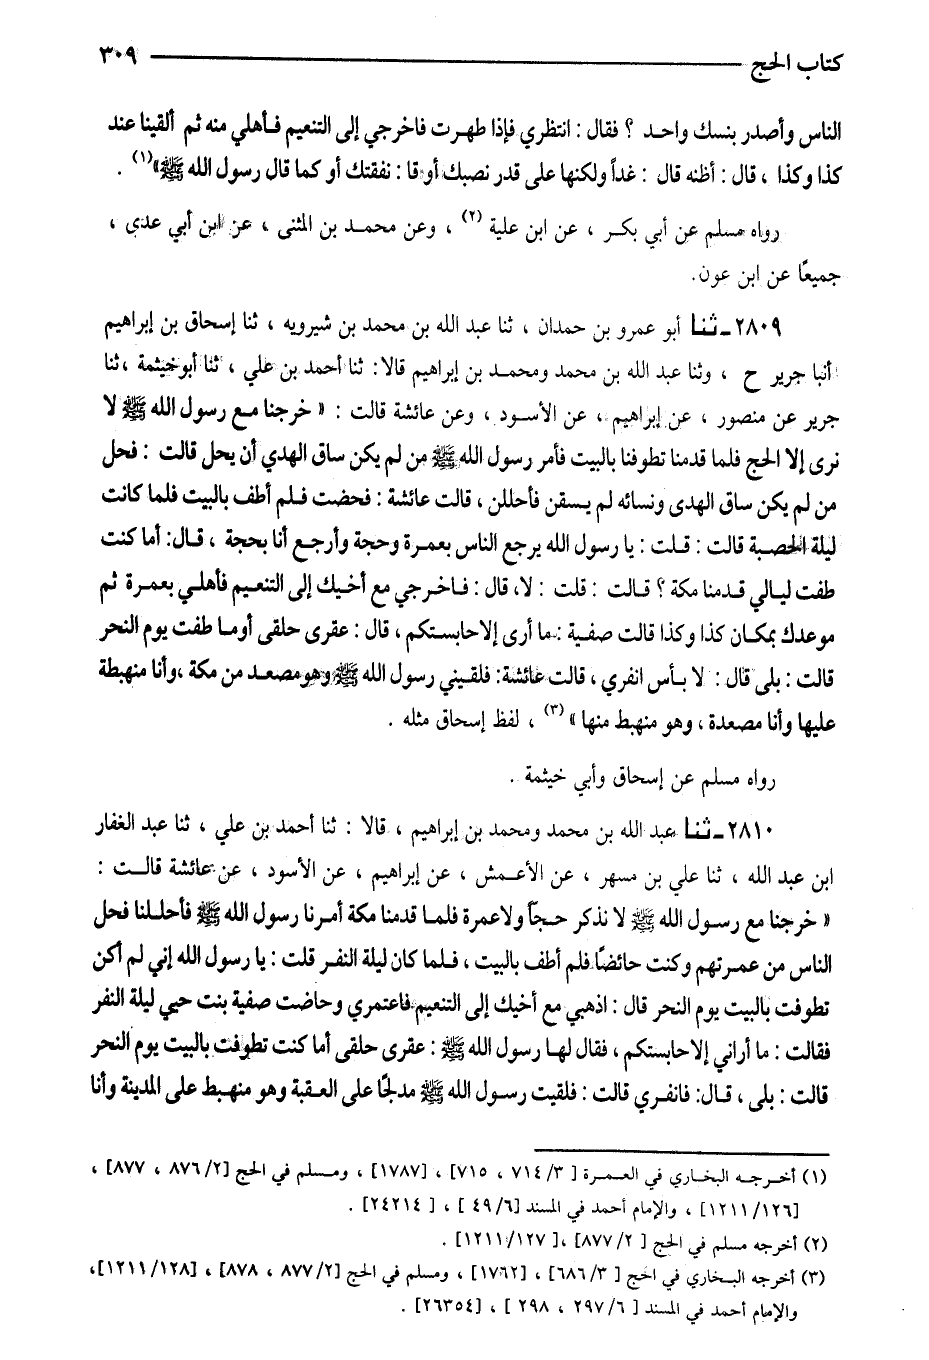 كتاب الحج ٣٠٩
الناس وأصدر بنسك واحد ؟ فقال : انتظري فإذا طهرت فاخرجي إلى التنعيم فأهلي منه ثم ألقينا عند
كذا وكذا ، قال : أظنه قال : غداً ولكنها على قدر نصبك أو قا : نفقتك أو كما قال رسول الله ﷺ» (١) .
رواه مسلم عن أبي بكر ، عن ابن علية (٢) ، وعن محمد بن المثنى ، عن ابن أبي عدي ،
جميعًا عن ابن عون.
٢٨٠٩ ـ ثنا أبو عمرو بن حمدان ، ثنا عبد الله بن محمد بن شيرويه ، ثنا إسحاق بن إبراهيم
أنبا جرير ح ، وثنا عبد الله بن محمد ومحمد بن إبراهيم قالا: ثنا أحمد بن علي ، ثنا أبو خيثمة ، ثنا
جرير عن منصور ، عن إبراهيم ، عن الأسود ، وعن عائشة قالت : « خرجنا مع رسول الله ﷺ لا
نرى إلا الحج فلما قدمنا تطوفنا بالبيت فأمر رسول الله ﷺ من لم يكن ساق الهدي أن يحل قالت : فحل
من لم يكن ساق الهدى ونسائه لم يسقن فأحللن ، قالت عائشة : فحضت فلم أطف بالبيت فلما كانت
ليلة الحصبة قالت : قلت : يا رسول الله يرجع الناس بعمرة وحجة وأرجع أنا بحجة ، قال: أما كنت
طفت ليالي قدمنا مكة ؟ قالت : قلت : لا، قال : فاخرجي مع أخيك إلى التنعيم فأهلي بعمرة ثم
موعدك بمكان كذا وكذا قالت صفية : ما أرى إلا حابستكم ، قال : عقرى حلقى أوما طفت يوم النحر
قالت : بلى قال : لا بأس انفري ، قالت عائشة: فلقيني رسول الله ﷺ وهو مصعد من مكة ، وأنا منهبطة
عليها وأنا مصعدة ، وهو منهبط منها » (٣) ، لفظ إسحاق مثله .
رواه مسلم عن إسحاق وأبي خيثمة .
٢٨١٠ ـ ثنا عبد الله بن محمد ومحمد بن إبراهيم ، قالا : ثنا أحمد بن علي ، ثنا عبد الغفار
ابن عبد الله ، ثنا علي بن مسهر ، عن الأعمش ، عن إبراهيم ، عن الأسود ، عن عائشة قالت :
« خرجنا مع رسول الله ﷺ لا نذكر حجاً ولا عمرة فلما قدمنا مكة أمرنا رسول الله ﷺ فأحللنا فحل
الناس من عمرتهم وكنت حائضًا فلم أطف بالبيت ، فلما كان ليلة النفر قلت : يا رسول الله إني لم أكن
تطوفت بالبيت يوم النحر قال : اذهبي مع أخيك إلى التنعيم فاعتمري وحاضت صفية بنت حيي ليلة النفر
فقالت : ما أراني إلا حابستكم ، فقال لها رسول الله ﷺ : عقرى حلقى أما كنت تطوفت بالبيت يوم النحر
قالت : بلى ، قال: فانفري قالت : فلقيت رسول الله ﷺ مدلجًا على العقبة وهو منهبط على المدينة وأنا
(١) أخرجه البخاري في العمرة [ ٣/ ٧١٤ ، ٧١٥] ، [١٧٨٧] ، ومسلم في الحج [٢/ ٨٧٦ ، ٨٧٧] ،
[١٢١١/١٢٦] ، والإمام أحمد في المسند [٦/ ٤٩ ] ، [ ٢٤٢١٤] .
(٢) أخرجه مسلم في الحج [ ٢/ ٨٧٧] ، [١٢٧/ ١٢١١] .
(٣) أخرجه البخاري في الحج [ ٣/ ٦٨٦] ، [١٧٦٢] ، ومسلم في الحج [٢/ ٨٧٧ ، ٨٧٨] ، [١٢٨/ ١٢١١]،
والإمام أحمد في المسند [ ٦/ ٢٩٧ ، ٢٩٨ ] ، [٢٦٣٥٤] .